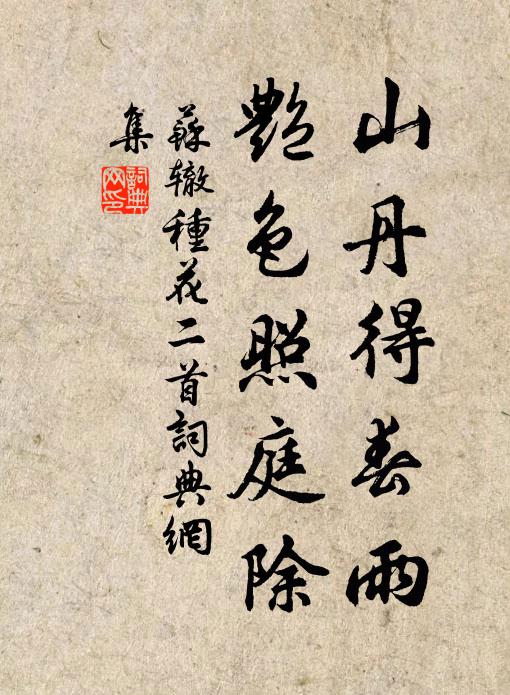 山丹得春雨
艷色照庭除
蘇辙種花二首詞典網
集
詞典
网印